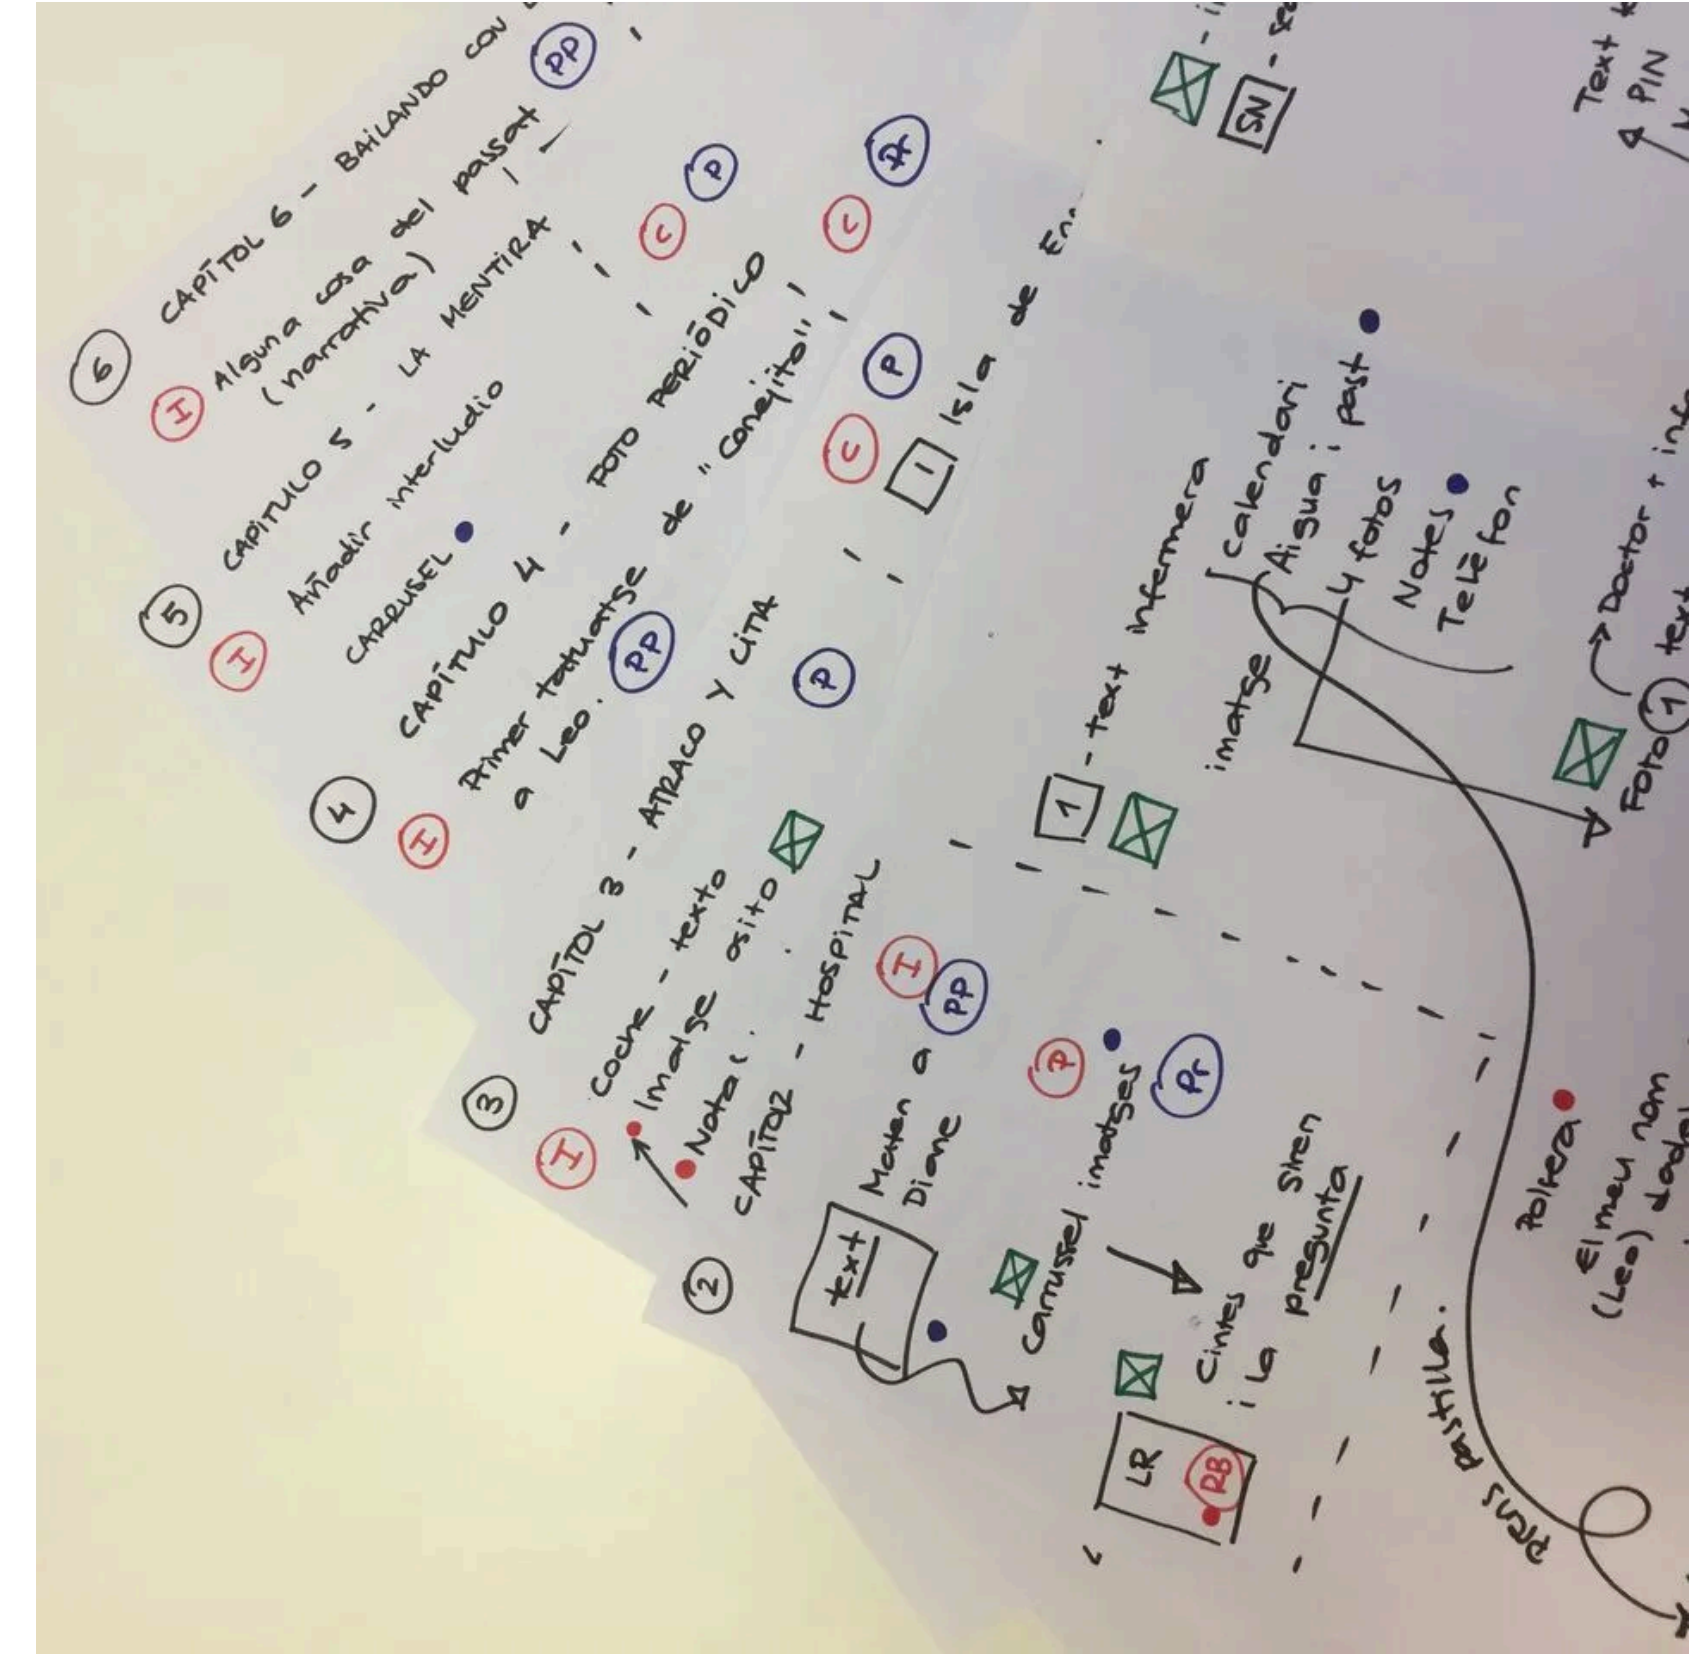 6 CAPÍTOL 6 - BAILANDO CON
I Alguna cosa del passat PP
(narrativa)
5 CAPÍTULO 5 - LA MENTIRA
I Añadir interludio
CARRUSEL
C P
4 CAPÍTULO 4 - FOTO PERIÓDICO
I Primer tatuatge de "conejito"
a Leo. PP
C Pr
3 CAPÍTOL 3 - ATRACO Y CITA
I Coche - texto
Imatge osito
Nota
P
C P
1 Isla de
2 CAPÍTOL 2 - HOSPITAL
text
Maten a
Diane
I PP
P
Carrussel imatges
Pr
LR
RB
Cintes que siren
i la pregunta
1 - text infermera
imatge
Calendari
Aigua i past
4 fotos
Notes
Telèfon
Doctor + inf
Foto 1 text
prens pastilla.
Polsera
El meu nom
(Leo)
SN
Text
PIN